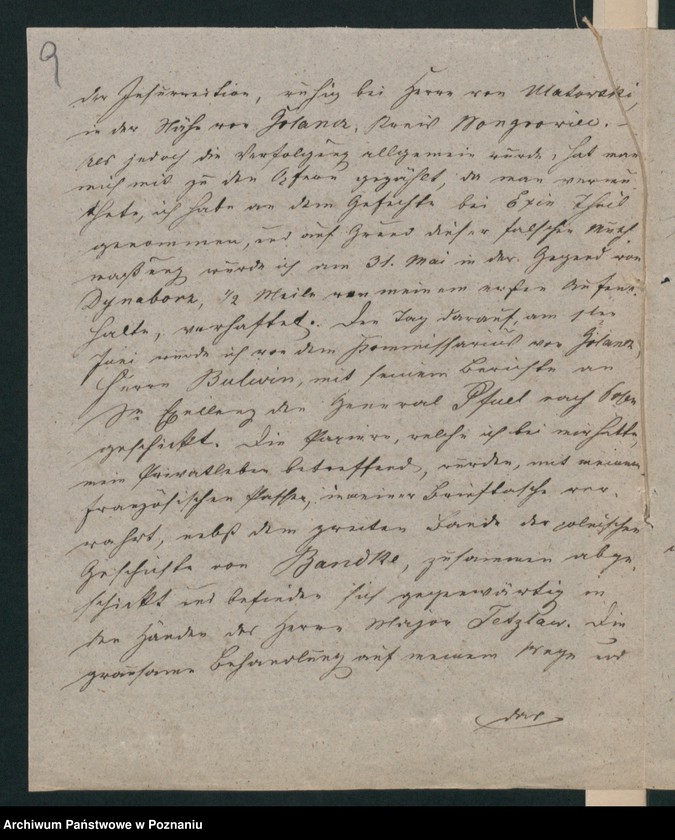 9
der Insurrection, ruhig bei Herrn von Matowski,
in der Nähe von Golancz, Kreis Wongrowiec. –
Als jedoch die Verfolgung allgemein wurde, hat man
mich mit zu den gezählt, da man vermu
thete, ich habe an dem Gefechte bei Exin Theil
genommen, und auf Grund dieser falschen Muth
maßung wurde ich am 31. Mai in der Gegend von
Dynaborz, 1/2 Meile von meinem ersten Aufent-
halte, verhaftet. Den Tag darauf, am 1ten
Juni wurde ich von dem Kommissarius von Golancz,
Herrn Bulwin, mit seinem Berichte an
Se Exellenz den General Pfuel nach Posen
geschickt. Die Papiere, welche ich bei mir hatte,
mein Privatleben betreffend, wurden, mit meinem
französischen Passe, in meiner Brieftasche ver-
wahrt, nebst dem zweiten Bande der polnischen
Geschichte von Bandke, zusammen abge-
schickt und befinden sich gegenwärtig in
den Händen des Herrn Major Tetzlaw. Die
grausame Behandlung auf meinem Wege und
das
Archiwum Państwowe w Poznaniu